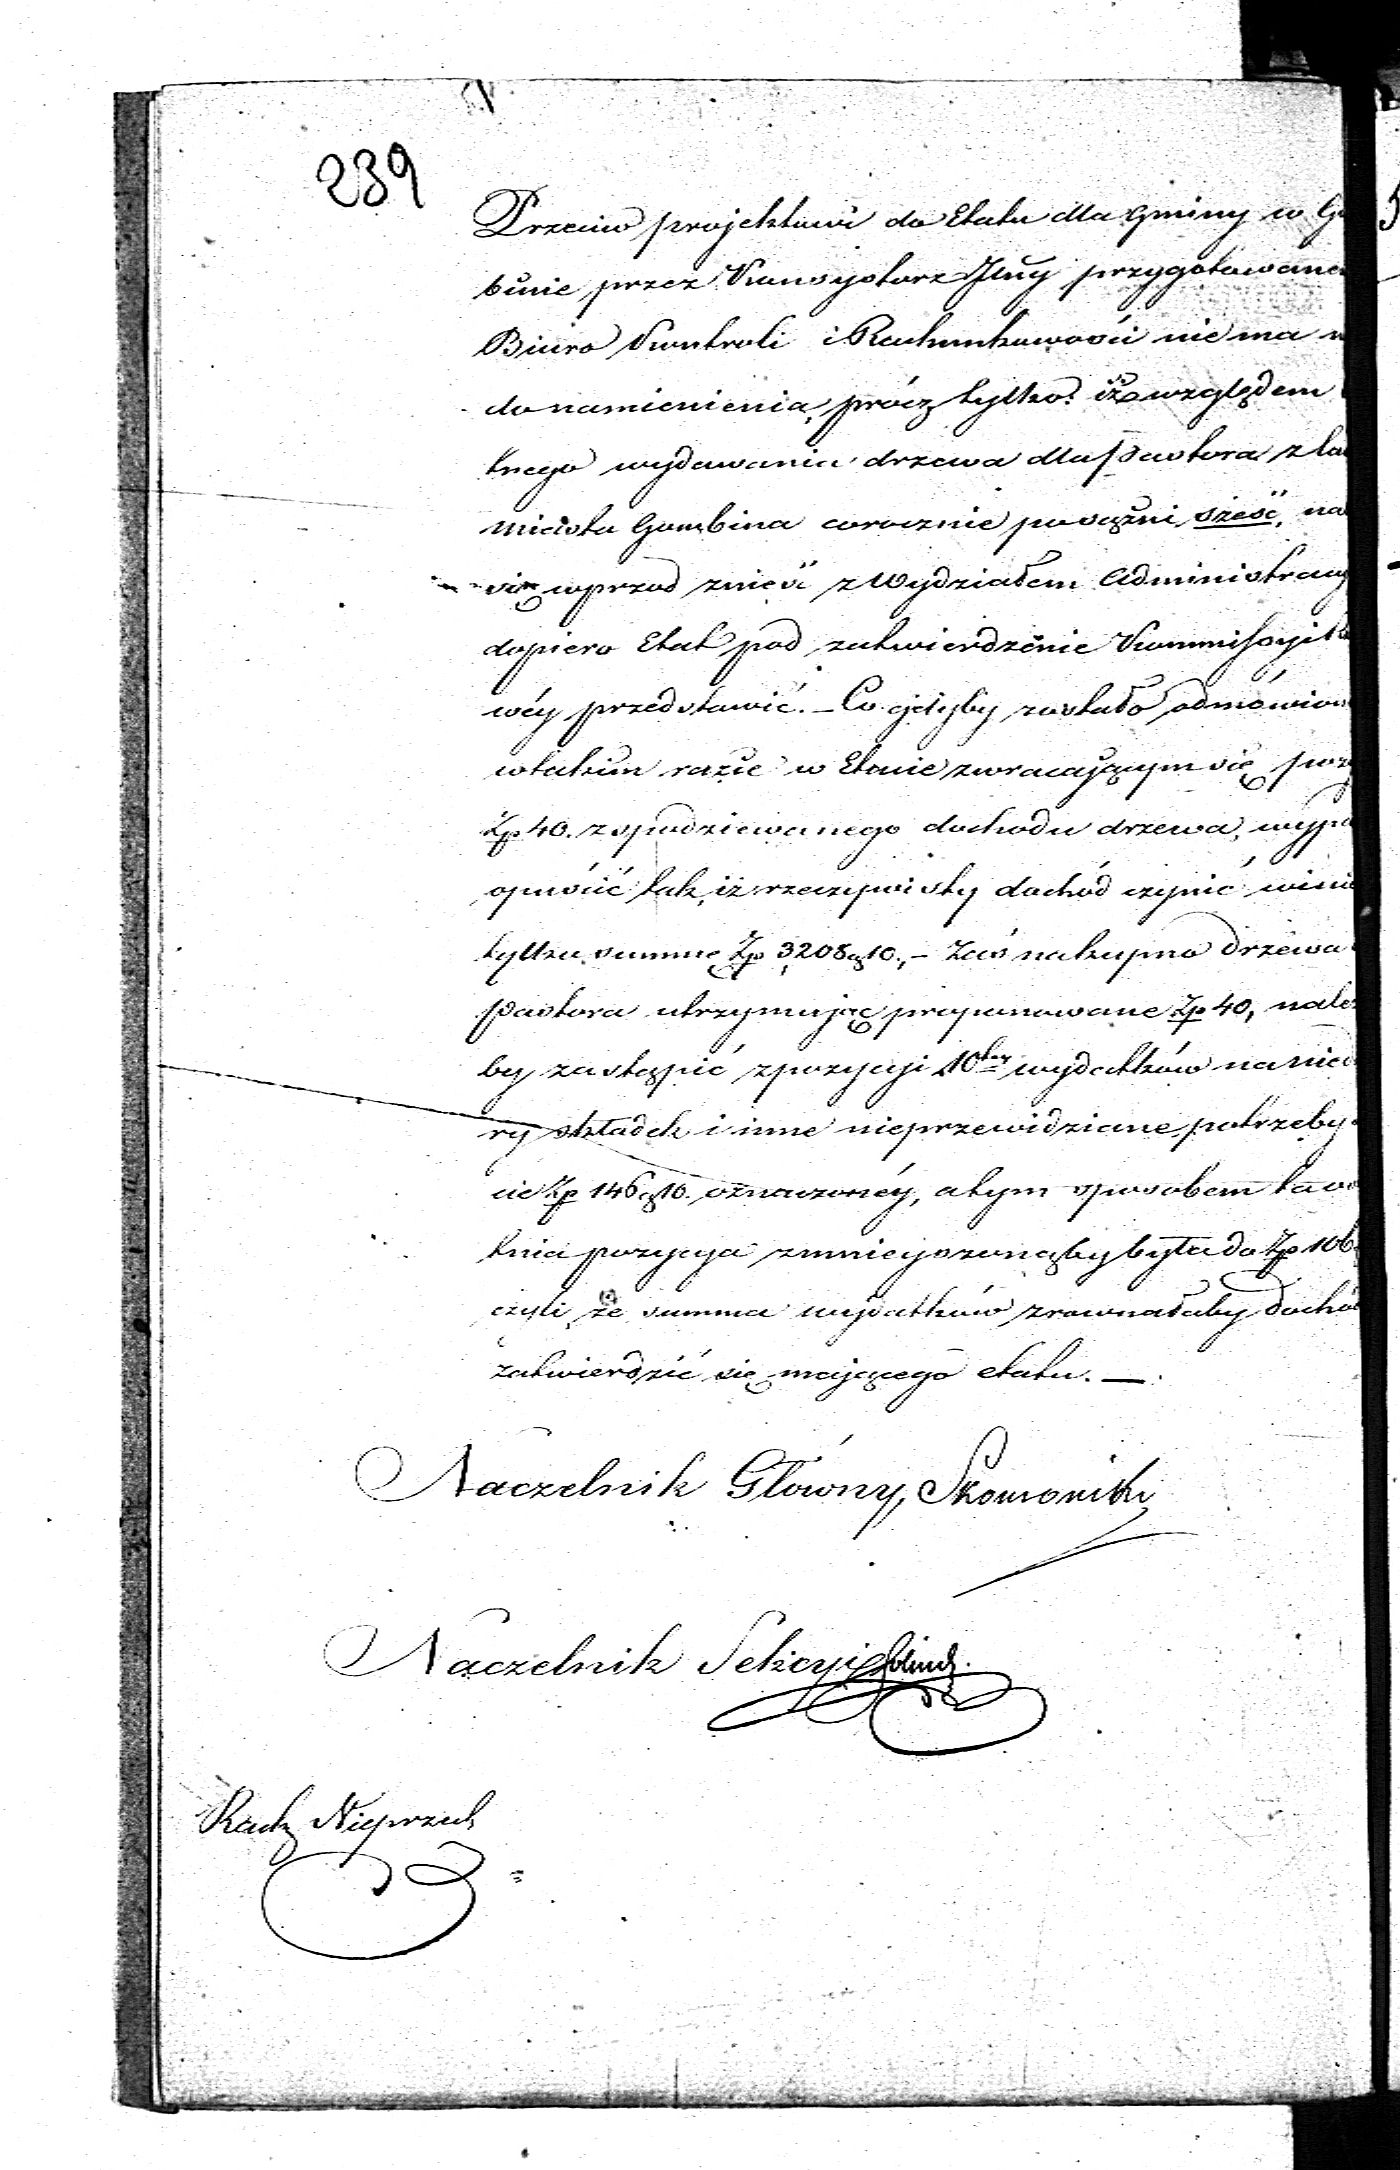 239
Przeciw projektowi do Etatu dla Gminy w
binie przez Konsystorz Jlny przygotowane
Biuro Kontroli i Rachunkowości nie ma
do namienienia, prócz tylko: iż względem
tnego wydawania drzewa dla Pastora z
miasta Gombina corocznie po sążni sześć,
się wprzód znieść z Wydziałem Administracy
dopiero Etat pod zatwierdzenie Kommissyi
wéy przedstawić. – Co gdyby zostało odmówion
w takim razie w Etacie zwracającym się
Zp 40. z spodziewanego dochodu drzewa,
opuścić tak, iż rzeczywisty dochód czynić
tylko summę Zp 3208 g 10. – Zaś na kupno drzewa
Pastora utrzymując proponowane Zp 40,
by zastąpić z pozycyi 10tey wydatków na
ry składek i inne nieprzewidziane potrzeby
cie Zp 146 g 10. oznaczonéy, a tym sposobem ta
tnia pozycya zmnieyszonąby była do Zp 106
czyli, że summa wydatków zrównałaby
zatwierdzić się mającego etatu. –
Naczelnik Główny,
Naczelnik Sekcyi